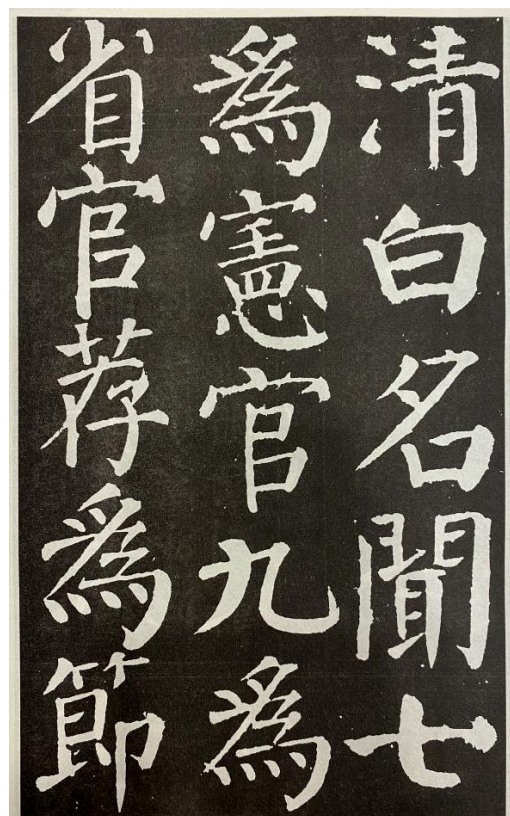 清白名聞七
為憲官九為
省官荐為節